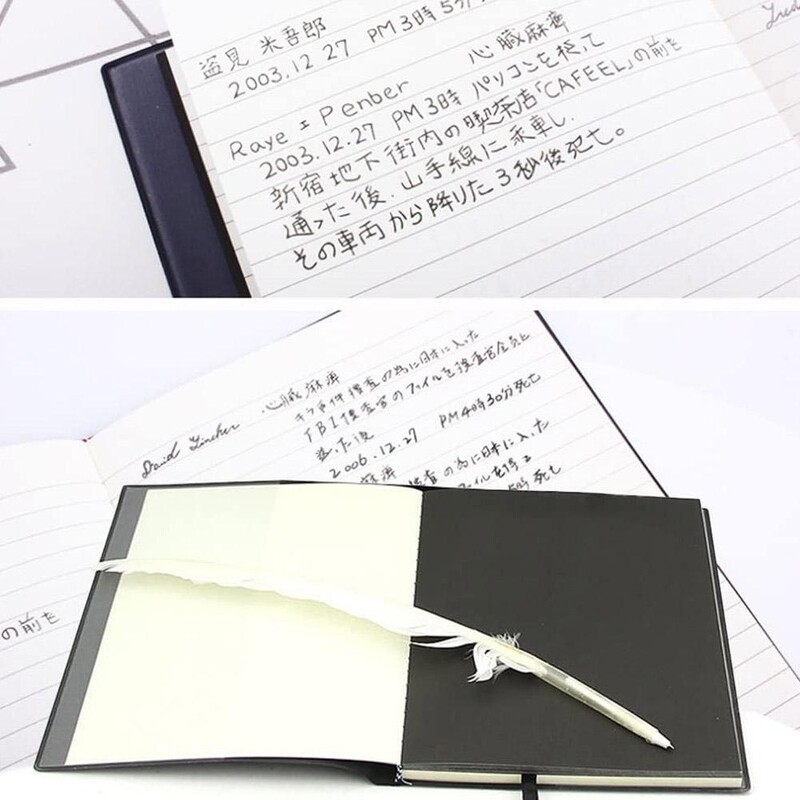 盗見 米吾郎 心臓麻痺
2003.12 27 PM 3時5分
Raye = Penber
2003.12.27 PM 3時 パソコンを終て
新宿地下街内の喫茶店「CAFEEL」の前を
通った後、山手線に乗車し、
その車両から降りた3秒後死亡。
心臓麻痺
キラ事件捜査の為に日本に入った
FBI捜査官のファイルを捜査官全員に
た後
2006.12.27 PM4時30分死亡
捜査の為に日本に入った
ファイルを得る
死亡
の前を